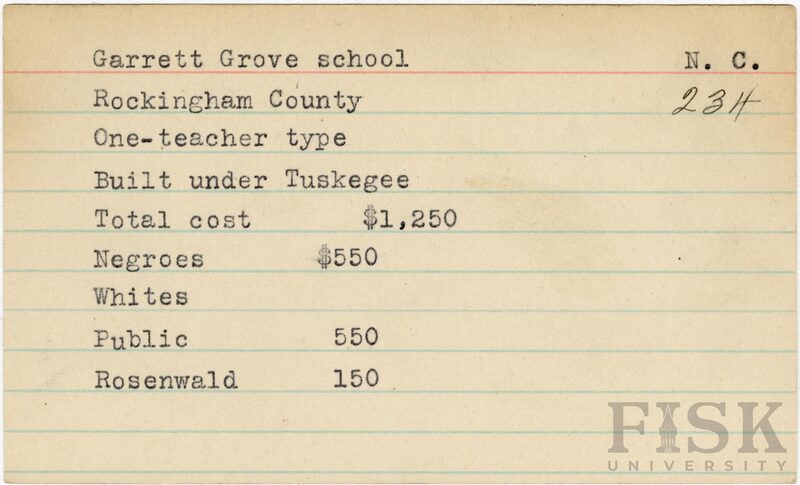 Garrett Grove school N. C.
Rockingham County 234
One-teacher type
Built under Tuskegee
Total cost $1,250
Negroes $550
Whites
Public 550
Rosenwald 150
FISK
UNIVERSITY